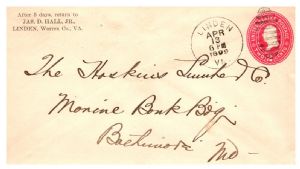 After 5 days, return to
JAS. D. HALL, JR.,
LINDEN, Warren Co., VA.
LINDEN
APR
13
6 PM
1899
VA
The Hoskins Limited Co.
Marine Bank Bdg
Baltimore Md